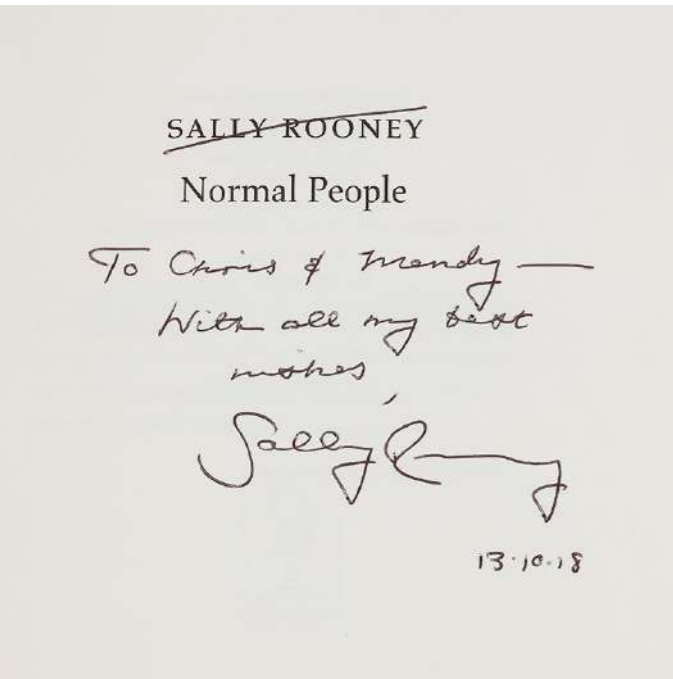 SALLY ROONEY
Normal People
To Chris & Mandy —
With all my best
wishes,
Sally Rooney
13.10.18